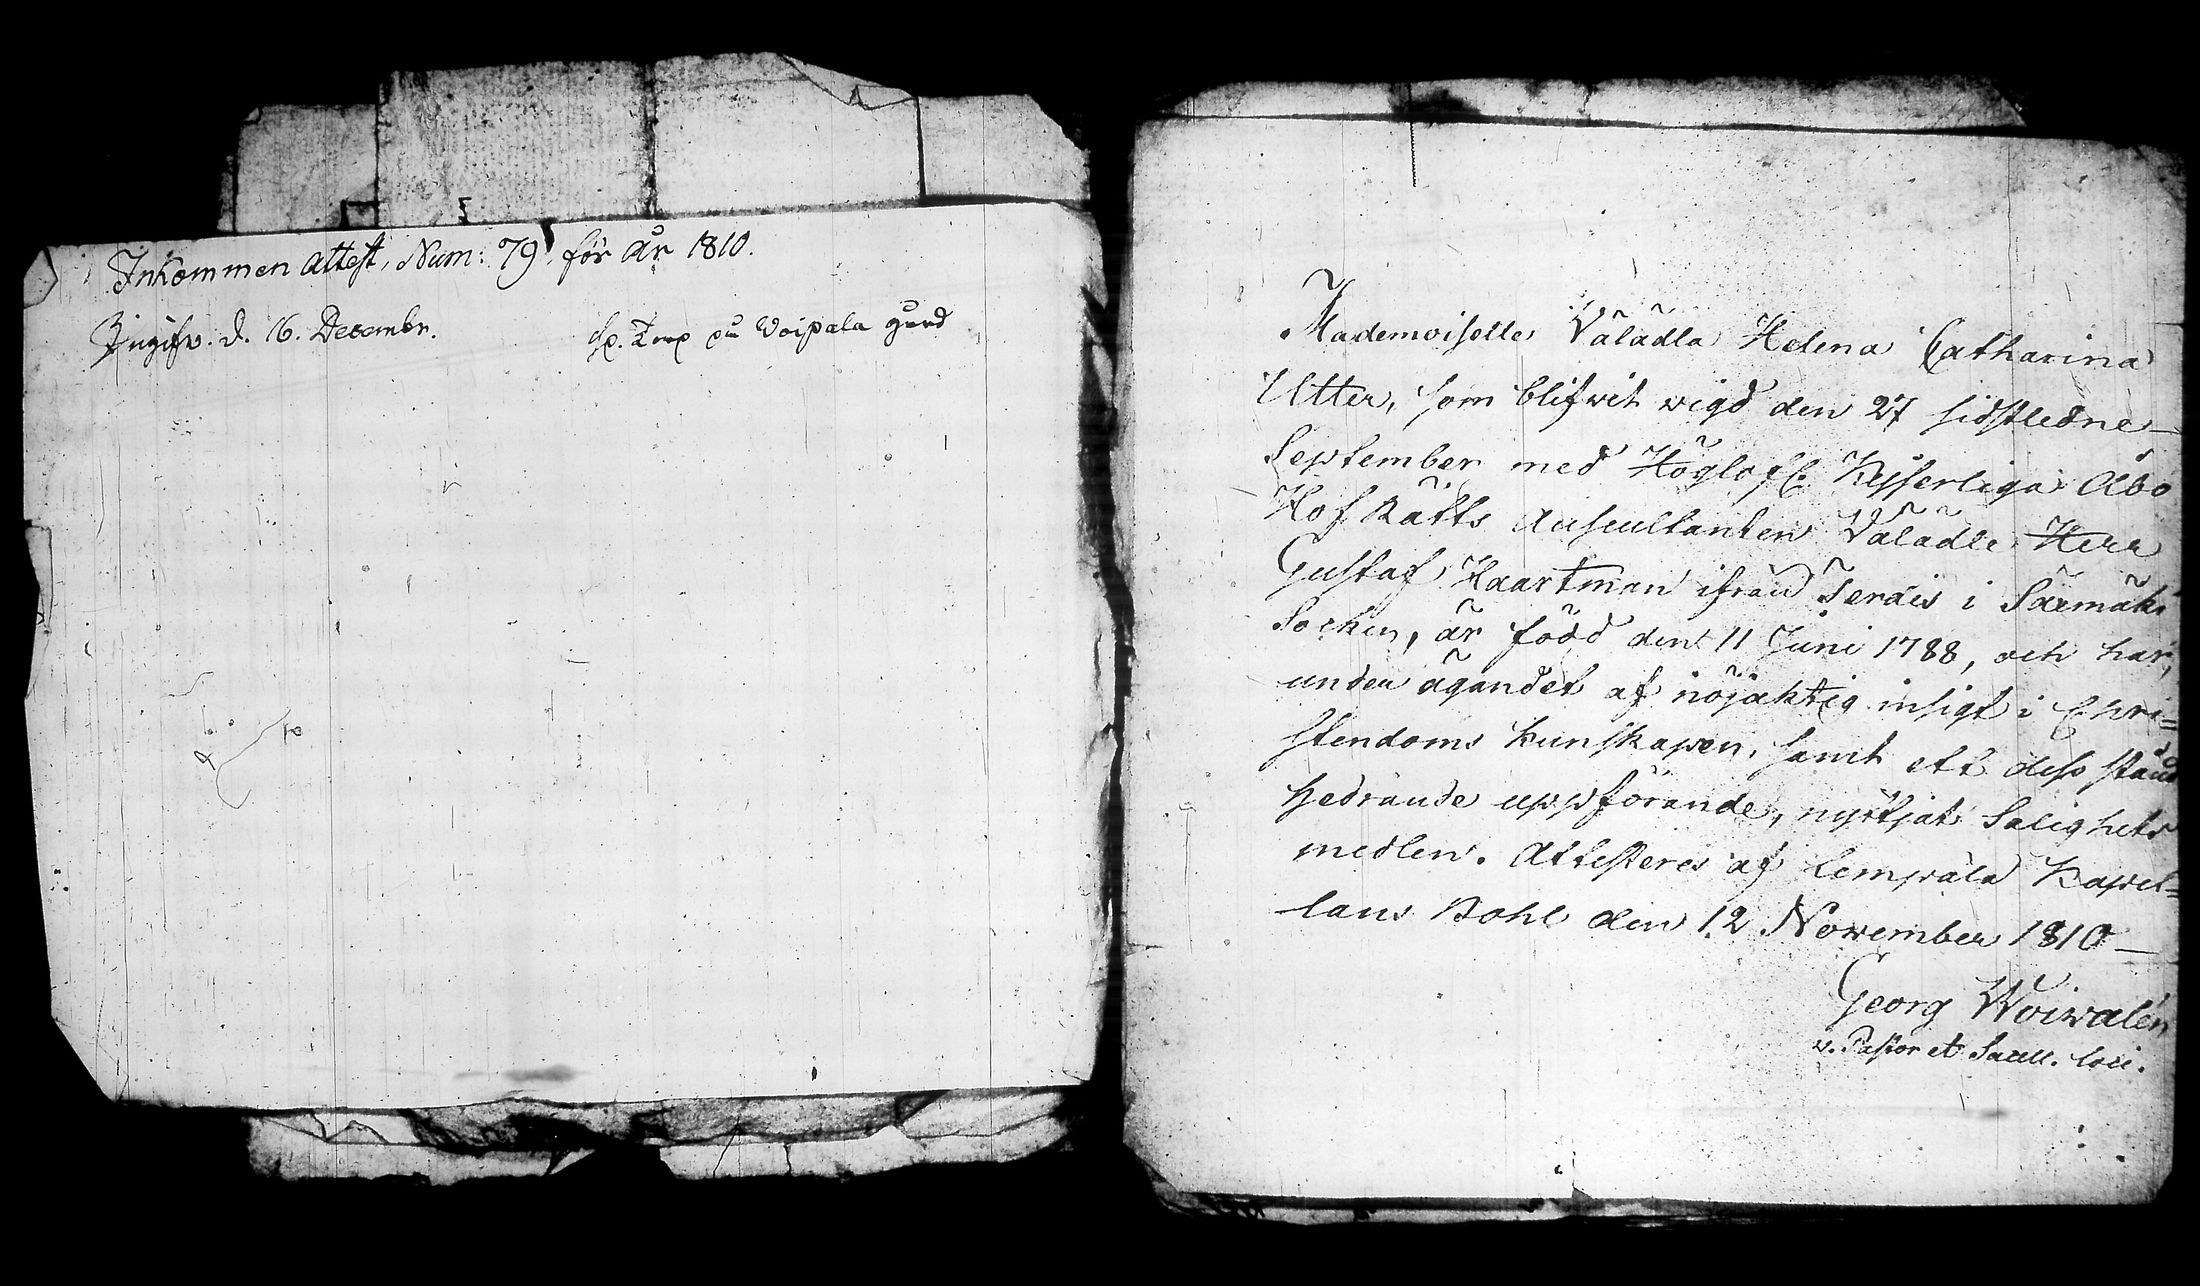 Inkommen Attest, Num: 79 för År 1810.
Ingifv. d. 16. Decembr.
på Voipala gård
Mademoiselle Välädla Helena Catharina
Utter, som blifvit wigd den 27 sidstledne
September med Höglofl. Kejserliga Åbo
Hof Rätts Auscultanten Välädle Herr
Gustaf Haartman ifrån Jeräis i Säxmäki
Sochen, är född den 11 Juni 1788, och har,
under ägandet af nöjaktig insigt i Chri=
stendoms kunskapen, samt ett dess stånd
hedrande uppförande, nyttjat Salighets
medlen. Attesteres af Lempäla Kapel=
lans Bohl den 12 November 1810
Georg Woivalén
v. Pastor et Sacell. loci.